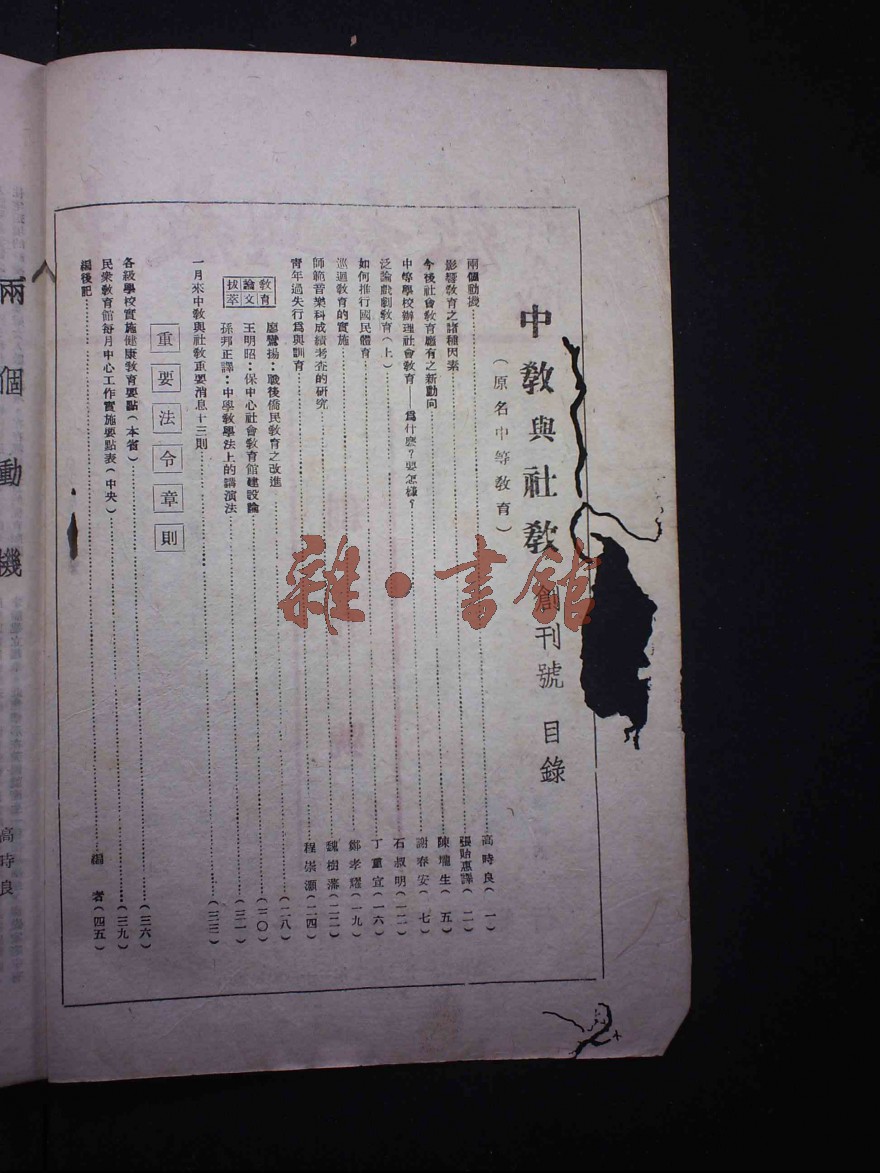 中教與社教 創刊號 目錄
（原名中等教育）
兩個動機……高時良（一）
影響教育之諸種因素……張貽惠譯（二）
今後社會教育應有之新動向……陳瓏生（五）
中等學校辦理社會教育——爲什麼？要怎樣？……謝春安（七）
泛論戲劇教育（上）……石叔明（一二）
如何推行國民體育……丁重宣（一六）
巡迴教育的實施……鄭孝耀（一九）
師範音樂科成績考查的研究……魏樹藩（二二）
青年過失行爲與訓育……程崇灝（二四）
教育論文拔萃
廖鸞揚：戰後僑民教育之改進……（二八）
王明昭：保中心社會教育館建設論……（三〇）
孫邦正譯：中學教學法上的講演法……（三一）
一月來中教與社教重要消息十三則……（三三）
重要法令章則
各級學校實施健康教育要點（本省）……（三六）
民衆教育館每月中心工作實施要點表（中央）……（三九）
編後記……編者（四五）
兩個動機
高時良
雜·書館